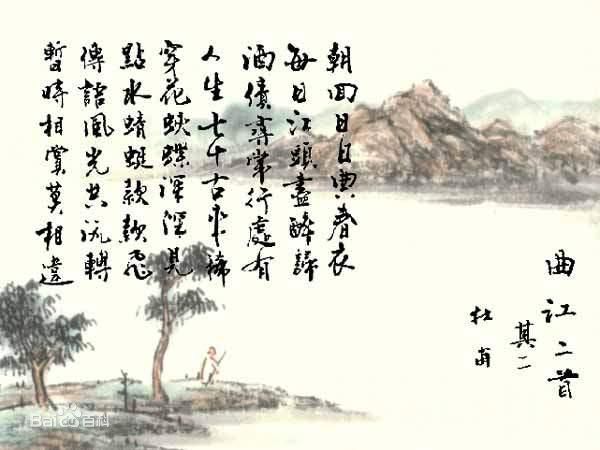 曲江二首
其二
杜甫
朝回日日典春衣
每日江頭盡醉歸
酒債尋常行處有
人生七十古來稀
穿花蛺蝶深深見
點水蜻蜓款款飛
傳語風光共流轉
暫時相賞莫相違
Bai百科